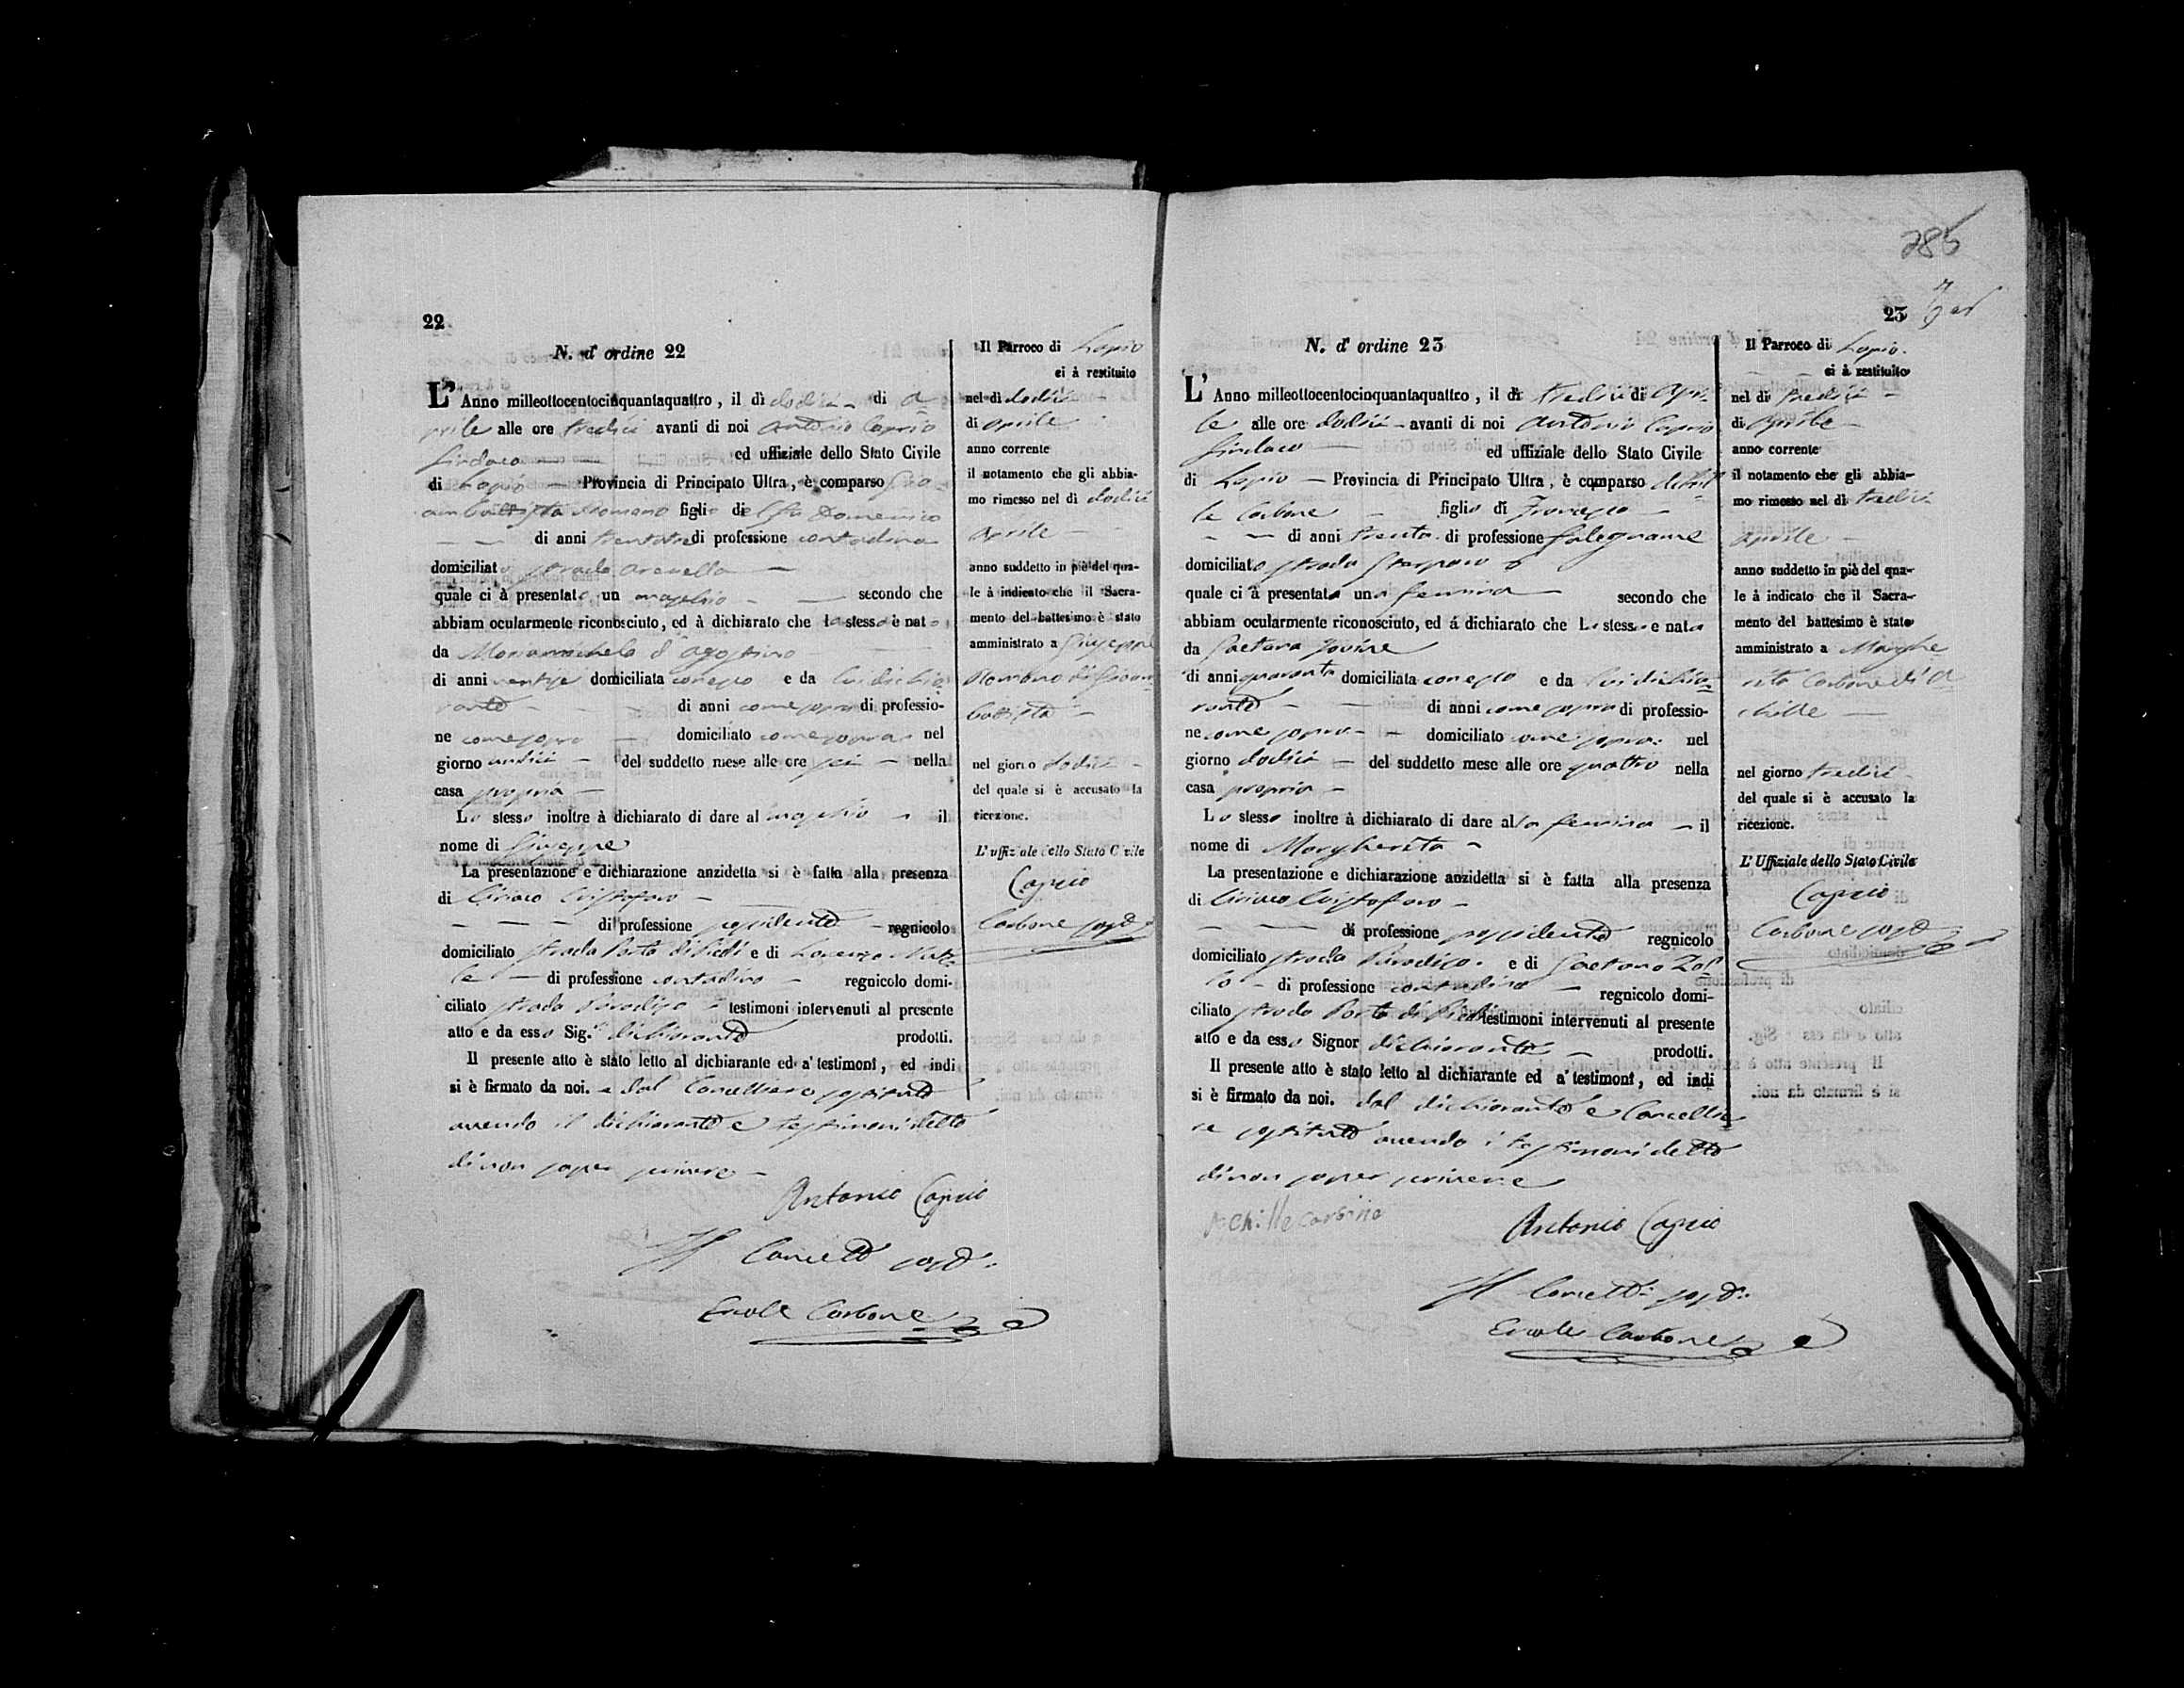 22
N. d' ordine 22
L' Anno milleottocentocinquantaquattro, il dì dodici di a-
prile alle ore tredici avanti di noi Antonio Caprio
Sindaco ed uffiziale dello Stato Civile
di Lapio Provincia di Principato Ultra, è comparso Gio-
ambattista Romano figlio del fu Domenico
di anni trentatre di professione contadino
domiciliato strada Arenella
quale ci à presentato un maschio secondo che
abbiam ocularmente riconosciuto, ed à dichiarato che lo stesso è nato
da Mariamichela d'Agostino
di anni domiciliata con esso e da lui dichia-
rante di anni come sopra di professio-
ne come sopra domiciliato come sopra nel
giorno undici del suddetto mese alle ore sei nella
casa propria
Lo stesso inoltre à dichiarato di dare al maschio il
nome di Giuseppe
La presentazione e dichiarazione anzidetta si è fatta alla presenza
di Ciriaco Cristofaro
di professione possidente regnicolo
domiciliato strada Porta di Piedi e di Lorenzo
di professione contadino regnicolo domi-
ciliato strada Paradiso testimoni intervenuti al presente
atto e da esso Sig.r dichiarante prodotti.
Il presente atto è stato letto al dichiarante ed a' testimoni, ed indi
si è firmato da noi. e dal Cancelliere sostituto
avendo il dichiarante e testimoni detto
di non saper scrivere
Antonio Caprio
Il Cancell. sost.
Ercole Carbone
Il Parroco di Lapio
ci à restituito
nel dì dodici
di aprile
anno corrente
il notamento che gli abbia-
mo rimesso nel dì dodici
aprile
anno suddetto in piè del qua-
le à indicato che il Sacra-
mento del battesimo è stato
amministrato a Giuseppe
Romano di Giovan-
battista
nel giorno dodici
del quale si è accusato la
ricezione.
L' uffiziale dello Stato Civile
Caprio
Carbone sost.
285
23
N. d' ordine 23
L' Anno milleottocentocinquantaquattro, il dì tredici di apri-
le alle ore dodici avanti di noi Antonio Caprio
Sindaco ed uffiziale dello Stato Civile
di Lapio Provincia di Principato Ultra, è comparso Achil-
le Carbone figlio di
di anni trenta di professione falegname
domiciliato strada
quale ci à presentata una femina secondo che
abbiam ocularmente riconosciuto, ed á dichiarato che La stessa e nata
da Gaetana Iovine
di anni quaranta domiciliata con esso e da lui dichia-
rante di anni come sopra di professio-
ne come sopra domiciliato come sopra nel
giorno dodici del suddetto mese alle ore quattro nella
casa propria
Lo stesso inoltre à dichiarato di dare alla femina il
nome di Margherita
La presentazione e dichiarazione anzidetta si è fatta alla presenza
di Ciriaco Cristofaro
di professione possidente regnicolo
domiciliato strada Paradiso e di Gaetano
di professione contadino regnicolo domi-
ciliato strada Porta di Piedi testimoni intervenuti al presente
atto e da esso Signor dichiarante prodotti.
Il presente atto è stato letto al dichiarante ed a' testimoni, ed indi
si è firmato da noi. dal dichiarante e Cancellie-
re sostituto avendo i testimoni detto
di non saper scrivere
Achille Carbone
Antonio Caprio
Il Cancell. sost.
Ercole Carbone
Il Parroco di Lapio
ci à restituito
nel dì tredici
di Aprile
anno corrente
il notamento che gli abbia-
mo rimesso nel dì tredici
aprile
anno suddetto in piè del qua-
le à indicato che il Sacra-
mento del battesimo è stato
amministrato a Marghe-
rita Carbone di A-
chille
nel giorno tredici
del quale si è accusato la
ricezione.
L' Uffiziale dello Stato Civile
Caprio
Carbone sost.